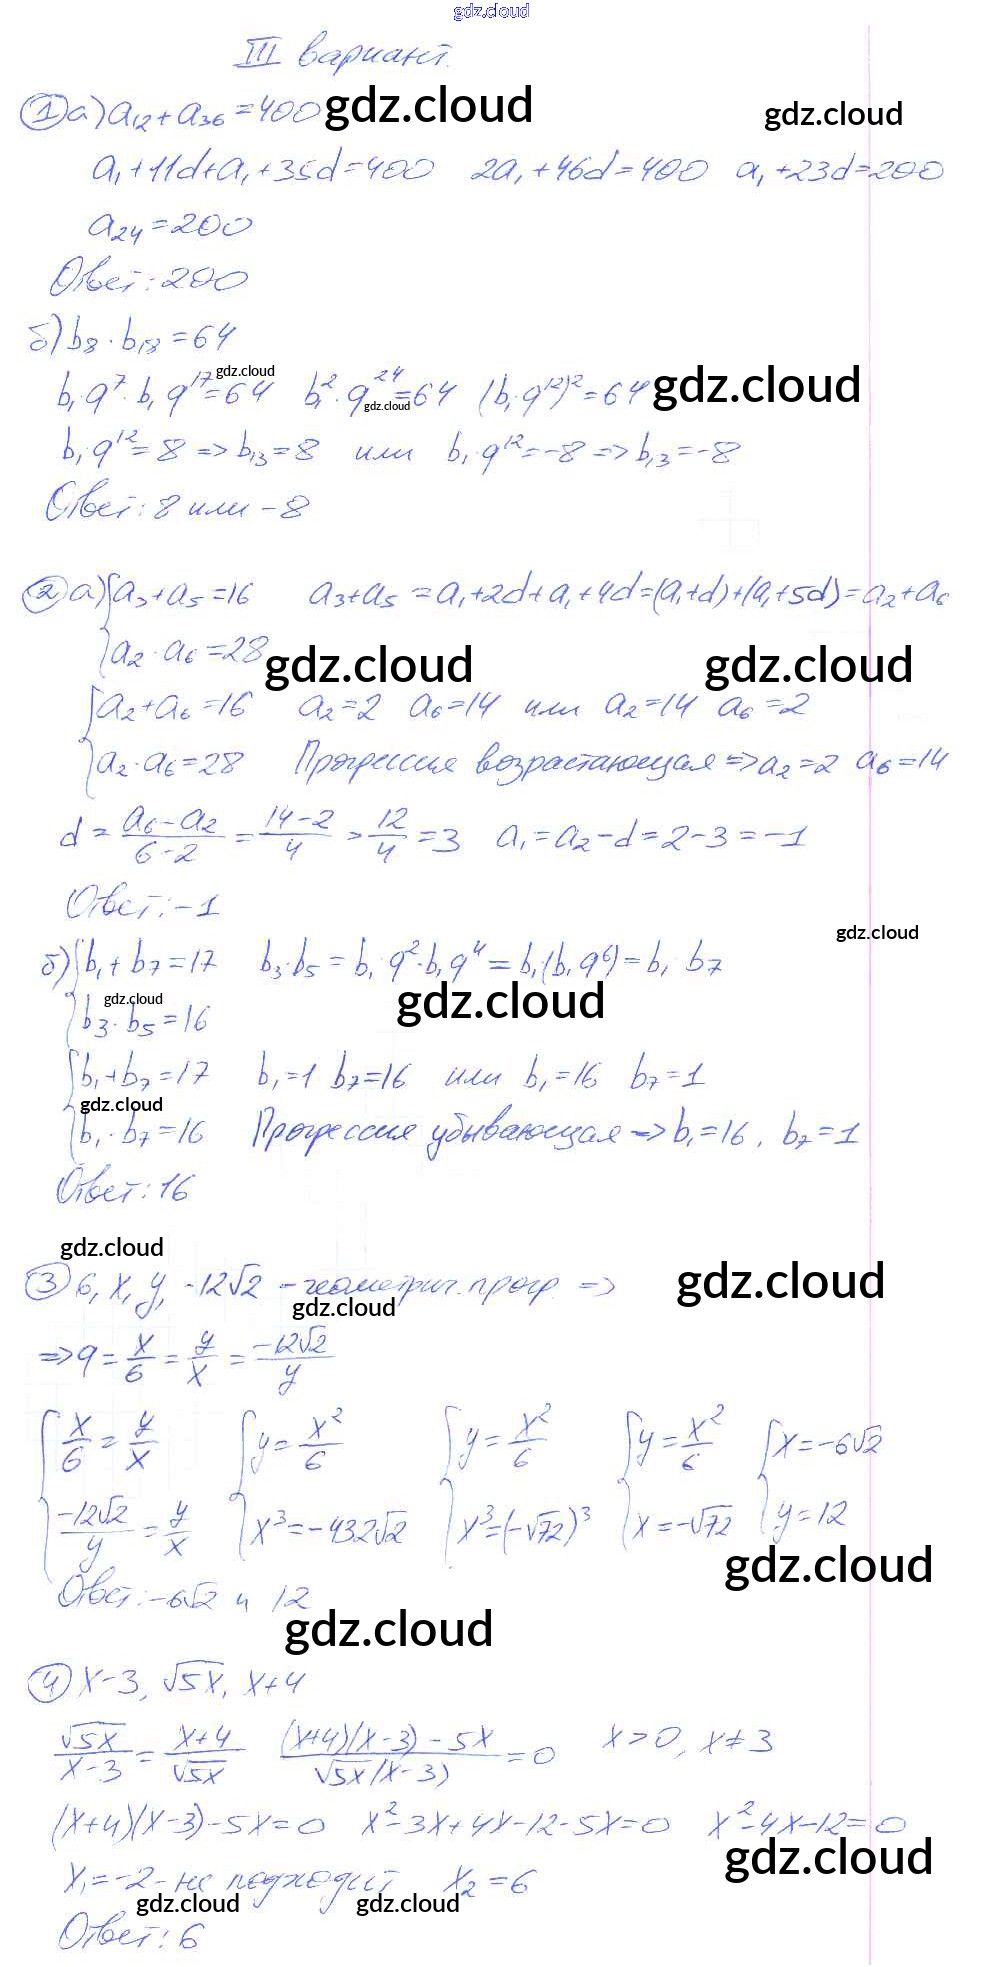 gdz.cloud
III вариант.
① а) a₁₂+a₃₆=400 gdz.cloud gdz.cloud
a₁+11d+a₁+35d=400 2a₁+46d=400 a₁+23d=200
a₂₄=200
Ответ: 200
б) b₈·b₁₈=64
b₁q⁷·b₁q¹⁷=64 b₁²·q²⁴=64 (b₁q¹²)²=64 gdz.cloud gdz.cloud gdz.cloud
b₁·q¹²=8 => b₁₃=8 или b₁·q¹²=-8 => b₁₃=-8
Ответ: 8 или -8
② а) {a₃+a₅=16 a₃+a₅=a₁+2d+a₁+4d=(a₁+d)+(a₁+5d)=a₂+a₆
a₂·a₆=28 gdz.cloud gdz.cloud
{a₂+a₆=16 a₂=2 a₆=14 или a₂=14 a₆=2
a₂·a₆=28 Прогрессия возрастающая => a₂=2 a₆=14
d = (a₆-a₂)/(6-2) = (14-2)/4 = 12/4 = 3 a₁=a₂-d=2-3=-1
Ответ: -1
gdz.cloud
б) {b₁+b₇=17 b₃·b₅=b₁·q²·b₁q⁴=b₁·(b₁q⁶)=b₁·b₇
gdz.cloud gdz.cloud
b₃·b₅=16
{b₁+b₇=17 b₁=1 b₇=16 или b₁=16 b₇=1
gdz.cloud
b₁·b₇=16 Прогрессия убывающая => b₁=16, b₇=1
Ответ: 16
gdz.cloud
③ 6, x, y, -12√2 - геометрич. прогр. => gdz.cloud
gdz.cloud
=> q = x/6 = y/x = -12√2/y
{x/6 = y/x {y = x²/6 {y = x²/6 {y = x²/6 {x=-6√2
-12√2/y = y/x x³=-432√2 x³=(-√72)³ x=-√72 y=12
gdz.cloud
Ответ: -6√2 и 12
gdz.cloud
④ x-3, √5x, x+4
√5x/(x-3) = (x+4)/√5x ((x+4)(x-3)-5x)/(√5x(x-3)) = 0 x>0, x≠3
(x+4)(x-3)-5x=0 x²-3x+4x-12-5x=0 x²-4x-12=0
gdz.cloud
x₁=-2 - не подходит x₂=6
gdz.cloud gdz.cloud
Ответ: 6